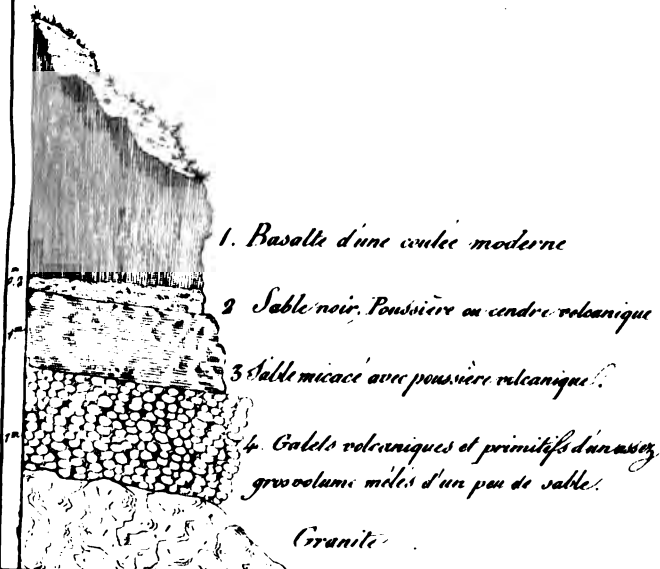 1. Basalte d'une coulée moderne
0,2
2 Sable noir. Poussière ou cendre volcanique
1m
3 Sable micacé avec poussière vulcanique.
1m
4. Galets volcaniques et primitifs d'un assez
gros volume mêlés d'un peu de sable.
Granite